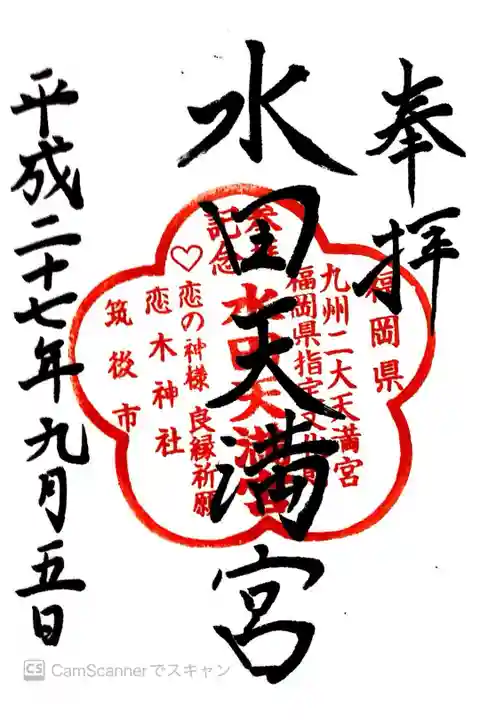 奉拝
水田天満宮
平成二十七年九月五日
福岡県
九州二大天満宮
福岡県指定文
水田天満宮
記念
♡恋の神様 良縁祈願
恋木神社
筑後市
CS CamScannerでスキャン